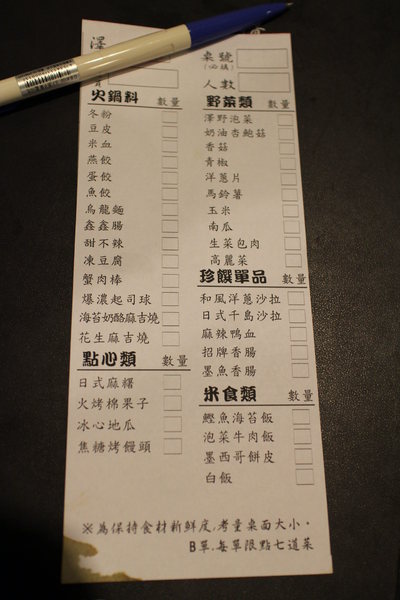 澤
桌號
(必填)
人數
火鍋料 數量
冬粉
豆皮
米血
燕餃
蛋餃
魚餃
烏龍麵
鑫鑫腸
甜不辣
凍豆腐
蟹肉棒
爆濃起司球
海苔奶酪麻吉燒
花生麻吉燒
點心類 數量
日式麻糬
火烤棉果子
冰心地瓜
焦糖烤饅頭
野菜類 數量
澤野泡菜
奶油杏鮑菇
香菇
青椒
洋蔥片
馬鈴薯
玉米
南瓜
生菜包肉
高麗菜
珍饌單品 數量
和風洋蔥沙拉
日式千島沙拉
麻辣鴨血
招牌香腸
墨魚香腸
米食類 數量
鰹魚海苔飯
泡菜牛肉飯
墨西哥餅皮
白飯
※為保持食材新鮮度,考量桌面大小。
B單,每單限點七道菜